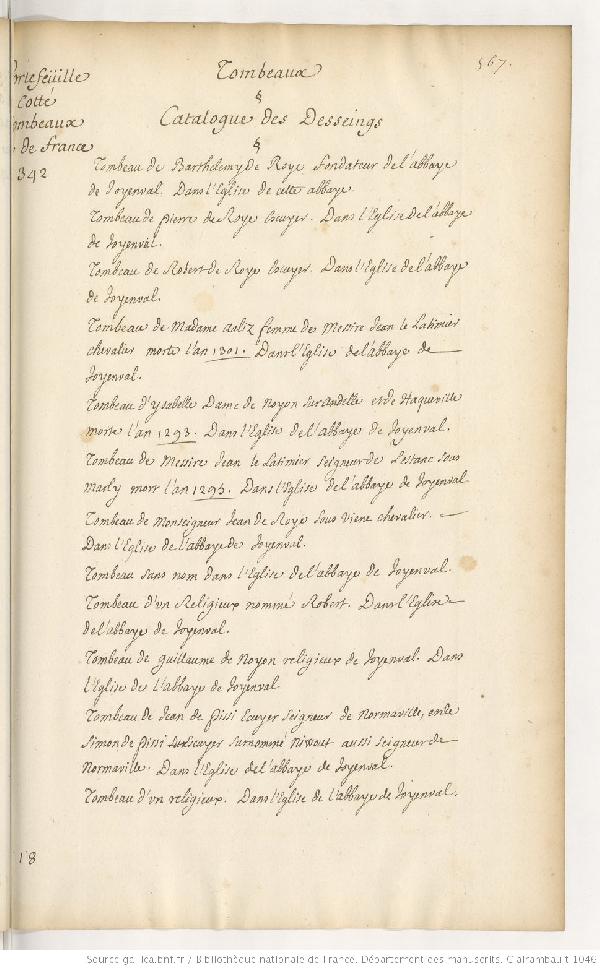 567.
Tombeaux
§
Catalogue des Desseings
§
rtefeüille
Cotté
ombeaux
de france
342
Tombeau de Barthelemy De Roye fondateur de l'abbaye
de Joyenval. Dans l'Eglise de cette abbaye
Tombeau de pierre de Roye Ecuyer. Dans l'Eglise de l'abbaye
de Joyenval.
Tombeau de Robert de Roye Ecuyer. Dans l'Eglise de l'abbaye
de Joyenval.
Tombeau de Madame aaliz femme de Messire Jean le Latimier
chevalier morte l'an 1301. Dans l'Eglise de l'abbaye de
Joyenval.
Tombeau d'ysabelle Dame de Noyon sur andelle et de Haqueville
morte l'an 1293. Dans l'Eglise de l'abbaye de Joyenval.
Tombeau de Messire Jean le Latimier seigneur de Lestanc sous
Marly mort l'an 1295. Dans l'Eglise de l'abbaye de Joyenval
Tombeau de Monseigneur Jean de Roye sous Viene chevalier.
Dans l'Eglise de l'abbaye de Joyenval.
Tombeau sans nom dans l'Eglise de l'abbaye de Joyenval.
Tombeau d'vn Religieux nommé Robert. Dans l'Eglise
de l'abbaye de Joyenval.
Tombeau de guillaume de Noyon religieux de Joyenval. Dans
l'Eglise de l'abbaye de Joyenval.
Tombeau de Jean de pissi Ecuyer seigneur de Normaville, et de
Simon de pissi surnommé aussi seigneur de
Normaville. Dans l'Eglise de l'abbaye de Joyenval.
Tombeau d'vn religieux. Dans l'Eglise de l'abbaye de Joyenval.
18
Source gallica.bnf.fr / Bibliothèque nationale de France. Département des manuscrits. Clairambault 1046